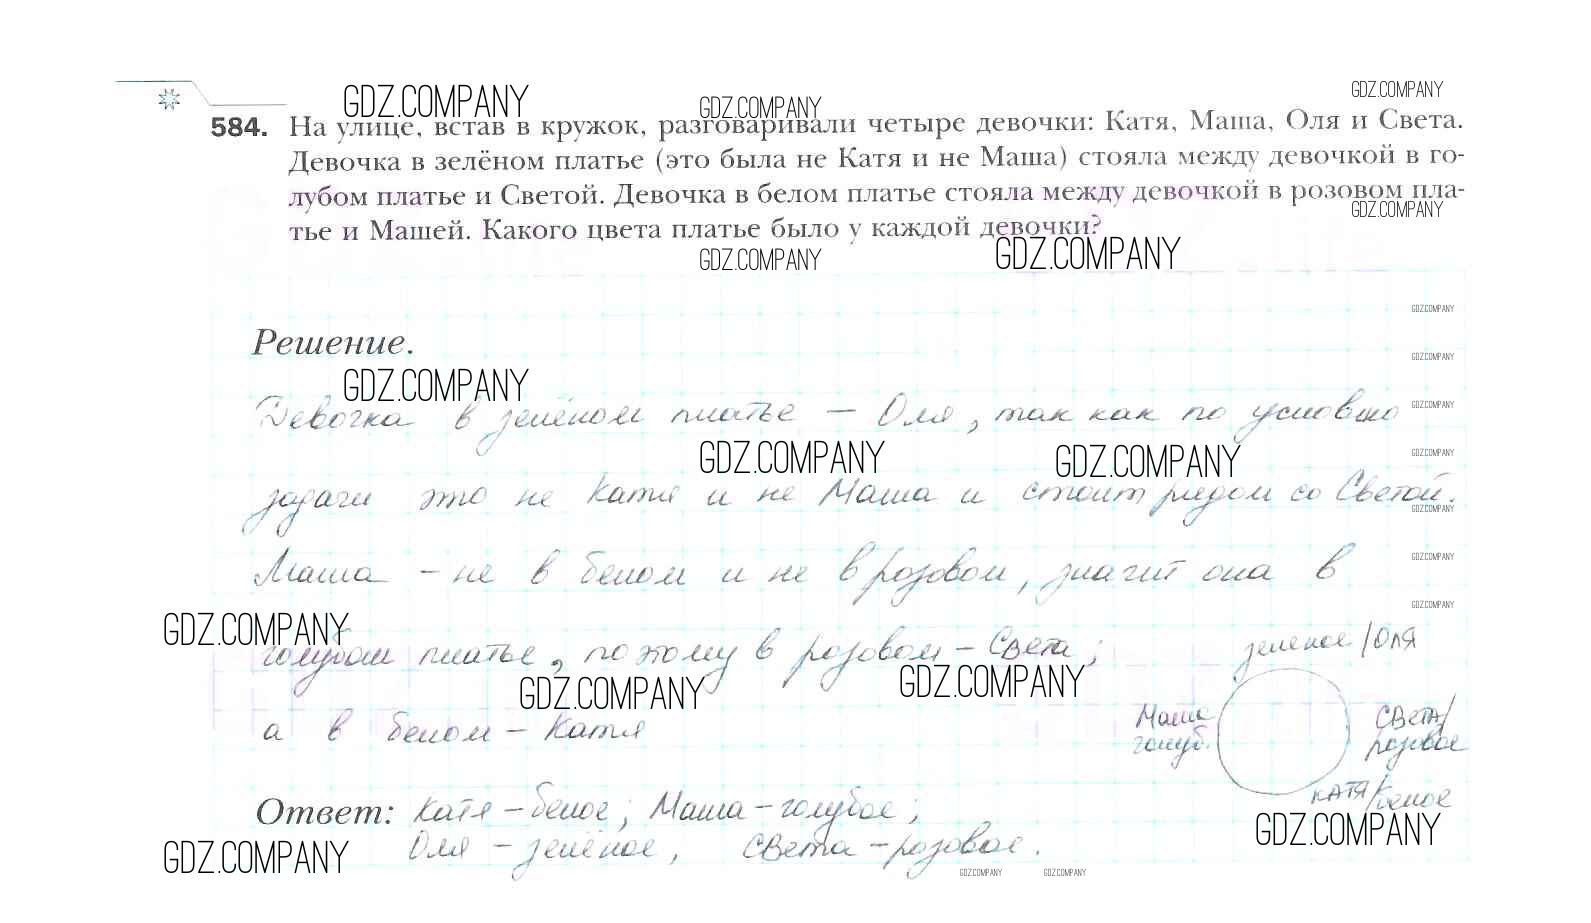 GDZ.COMPANY GDZ.COMPANY GDZ.COMPANY
584. На улице, встав в кружок, разговаривали четыре девочки: Катя, Маша, Оля и Света.
Девочка в зелёном платье (это была не Катя и не Маша) стояла между девочкой в го-
лубом платье и Светой. Девочка в белом платье стояла между девочкой в розовом пла-
GDZ.COMPANY
тье и Машей. Какого цвета платье было у каждой девочки?
GDZ.COMPANY GDZ.COMPANY
GDZ.COMPANY
Решение.
GDZ.COMPANY
GDZ.COMPANY
Девочка в зелёном платье – Оля, так как по условию
GDZ.COMPANY
GDZ.COMPANY GDZ.COMPANY GDZ.COMPANY
задачи это не Катя и не Маша и стоит рядом со Светой.
GDZ.COMPANY
GDZ.COMPANY
Маша – не в белом и не в розовом, значит она в
GDZ.COMPANY
GDZ.COMPANY
голубом платье, поэтому в розовом – Света;
зеленое/Оля
GDZ.COMPANY GDZ.COMPANY
а в белом – Катя
Маша голуб.
Света/розовое
Катя/белое
Ответ: Катя – белое; Маша – голубое;
GDZ.COMPANY
Оля – зелёное, Света – розовое.
GDZ.COMPANY
GDZ.COMPANY GDZ.COMPANY